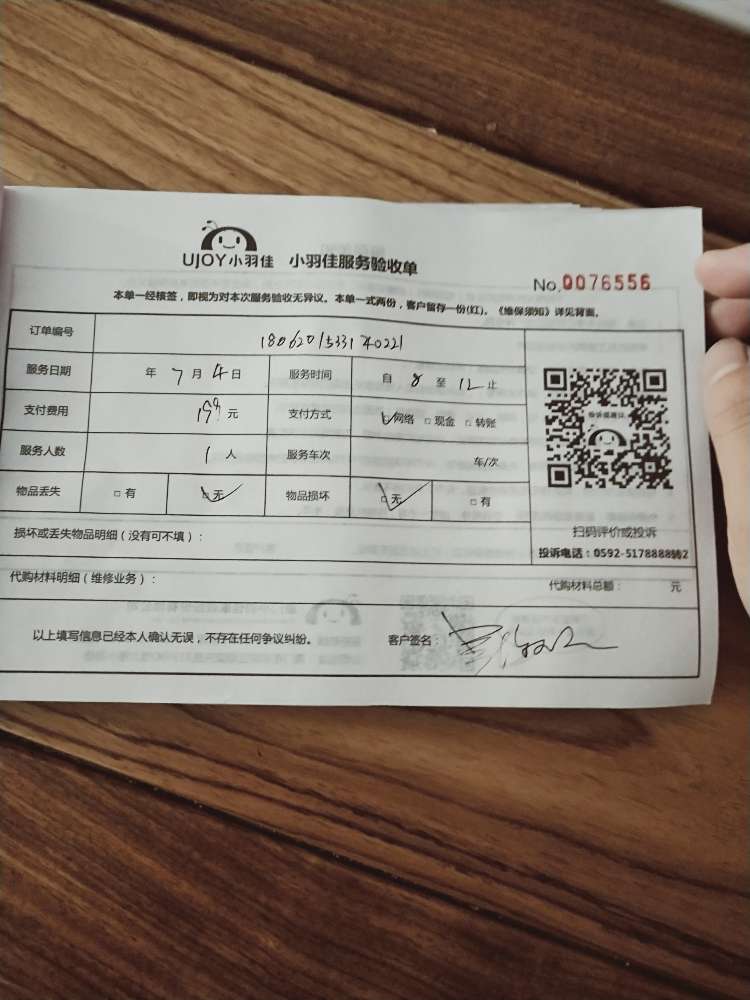 UJOY小羽佳 小羽佳服务验收单
No.0076556
本单一经核签，即视为对本次服务验收无异议。本单一式两份，客户留存一份(红)。《维保须知》详见背面。
订单编号 18062015331740221
服务日期 年 7 月 4 日 服务时间 自 8 至 12 止
支付费用 199 元 支付方式 □网络 □现金 □转账
服务人数 1 人 服务车次 车/次
物品丢失 □有 □无 物品损坏 □无 □有
投诉或建议
扫码评价或投诉
投诉电话：0592-5178888转2
损坏或丢失物品明细（没有可不填）：
代购材料明细（维修业务）： 代购材料总额： 元
以上填写信息已经本人确认无误，不存在任何争议纠纷。 客户签名：